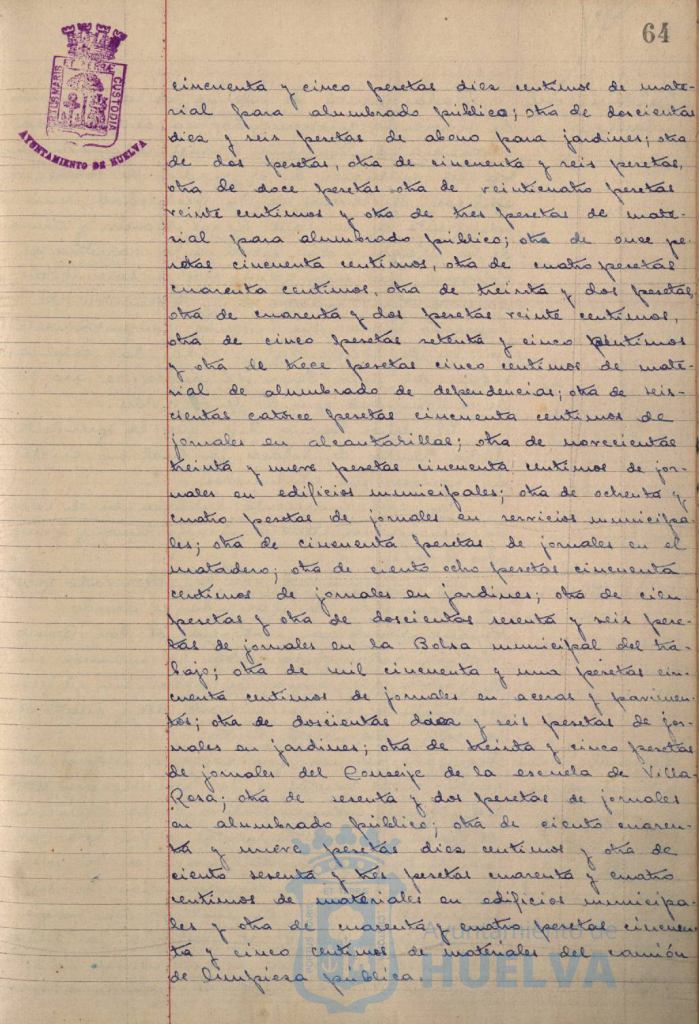 64
PORTUS MARIS ET TERRAE CUSTODIA
AYUNTAMIENTO DE HUELVA
cincuenta y cinco pesetas diez centimos de mate-
rial para alumbrado público; otra de doscientas
diez y seis pesetas de abono para jardines; otra
de dos pesetas, otra de cincuenta y seis pesetas,
otra de doce pesetas otra de veinticuatro pesetas
veinte centimos y otra de tres pesetas de mate-
rial para alumbrado público; otra de once pe-
setas cincuenta centimos, otra de cuatro pesetas
cuarenta centimos, otra de treinta y dos pesetas,
otra de cuarenta y dos pesetas veinte centimos,
otra de cinco pesetas setenta y cinco centimos
y otra de trece pesetas cinco centimos de mate-
rial de alumbrado de dependencias; otra de seis-
cientas catorce pesetas cincuenta centimos de
jornales en alcantarillas; otra de novecientas
treinta y nueve pesetas cincuenta centimos de jor-
nales en edificios municipales; otra de ochenta y
cuatro pesetas de jornales en servicios municipa-
les; otra de cincuenta pesetas de jornales en el
matadero; otra de ciento ocho pesetas cincuenta
centimos de jornales en jardines; otra de cien
pesetas y otra de doscientas sesenta y seis pese-
tas de jornales en la Bolsa municipal del tra-
bajo; otra de mil cincuenta y una pesetas cin-
cuenta centimos de jornales en aceras y pavimen-
tos; otra de doscientas diez y seis pesetas de jor-
nales en jardines; otra de treinta y cinco pesetas
de jornales del Conserje de la escuela de Villa
Rosa; otra de sesenta y dos pesetas de jornales
en alumbrado público; otra de ciento cuaren-
ta y nueve pesetas diez centimos y otra de
ciento sesenta y tres pesetas cuarenta y cuatro
centimos de materiales en edificios municipa-
les y otra de cuarenta y cuatro pesetas cincuen-
ta y cinco centimos de materiales del camión
de limpieza pública.
Ayuntamiento de
HUELVA